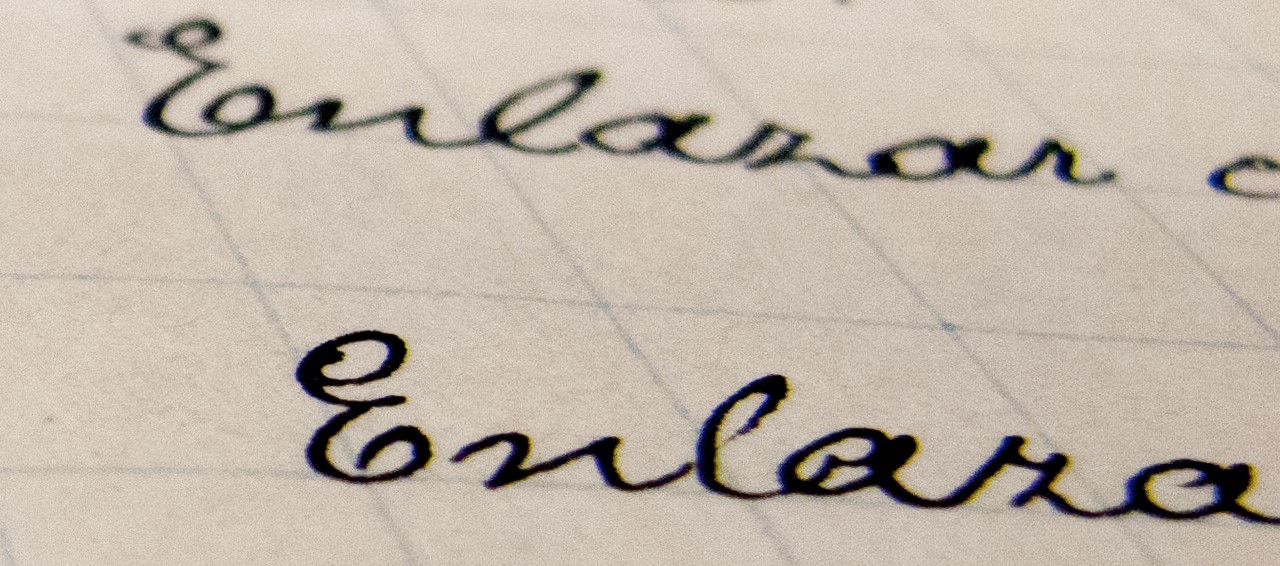 Enlazar
Enlaza